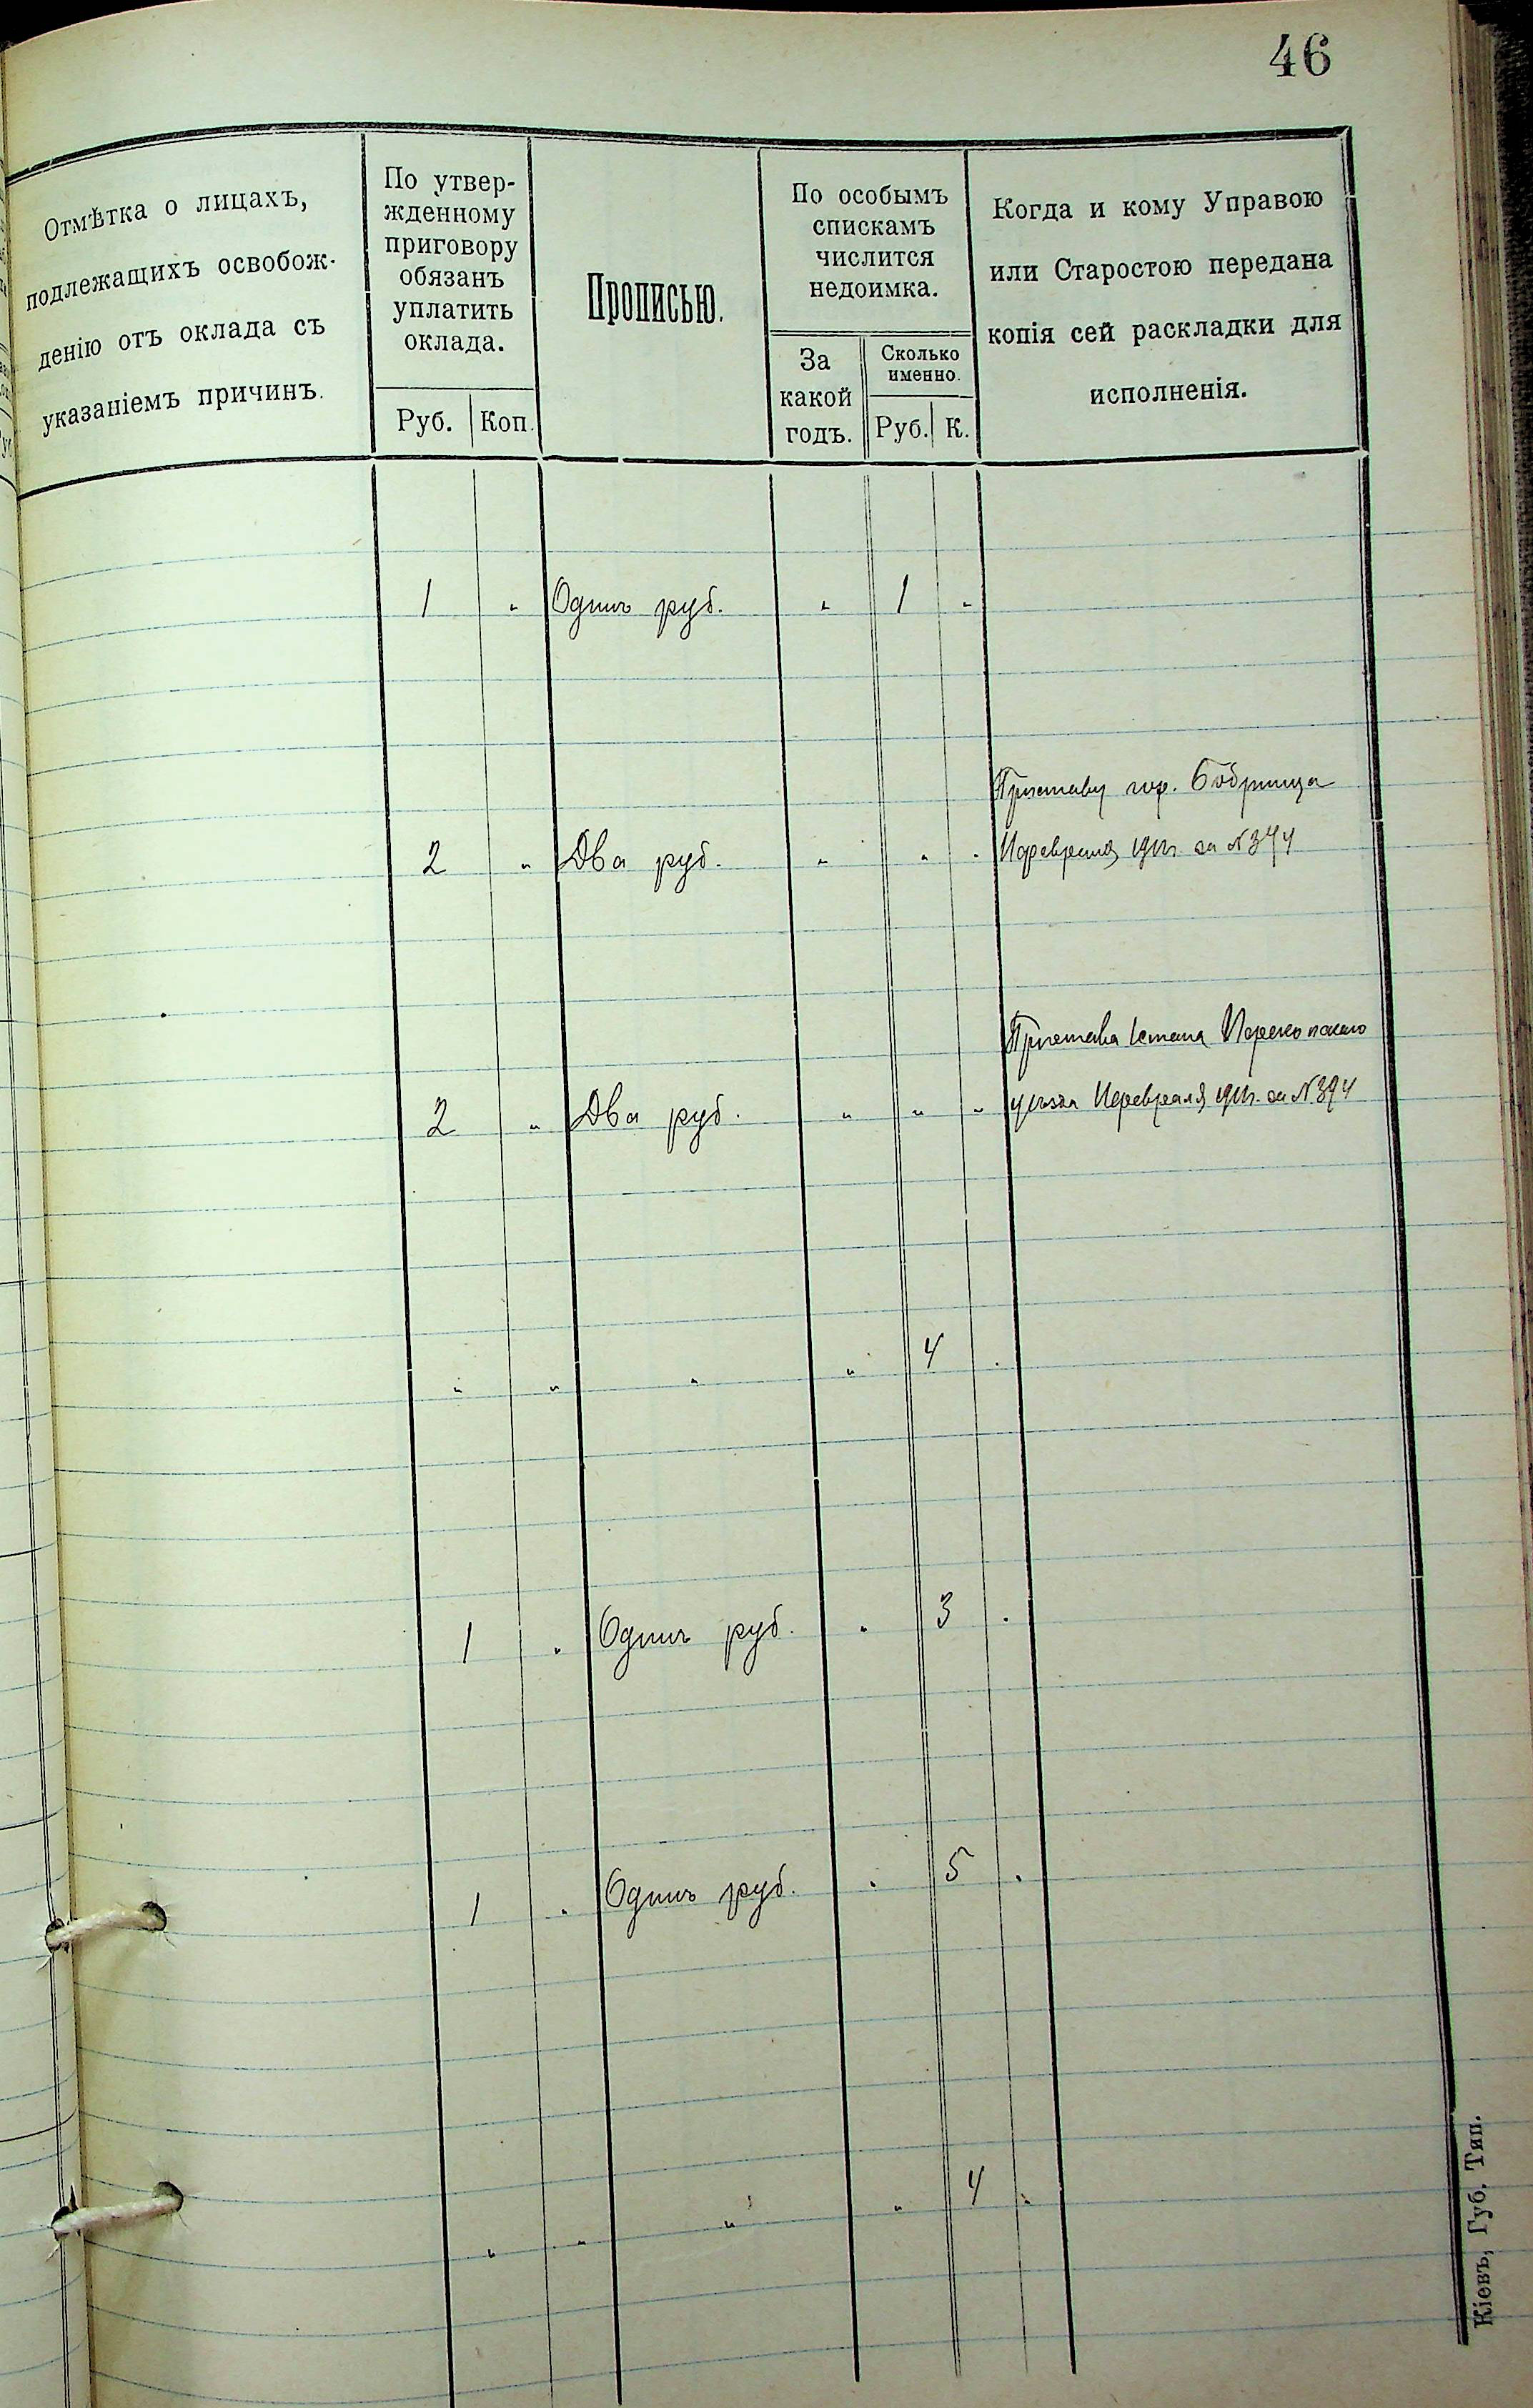 46
Отмѣтка о лицахъ,
подлежащихъ освобож-
денію отъ оклада съ
указаніемъ причинъ.
По утвер-
жденному
приговору
обязанъ
уплатить
оклада.
Руб. Коп.
Прописью.
По особымъ
спискамъ
числится
недоимка.
За
какой
годъ.
Сколько
именно.
Руб. К.
Когда и кому Управою
или Старостою передана
копія сей раскладки для
исполненія.
1 " Одинъ руб. " 1 "
Приставу гор. Бобринца
2 " Два руб. " " " февраля за №
Пристава стана
2 " Два руб. " " " уѣзда февраля за № 394
" " " " 4 "
1 " Одинъ руб. " 3 "
1 " Одинъ руб. " 5 "
" " " " 4 "
Кіевъ, Губ. Тип.